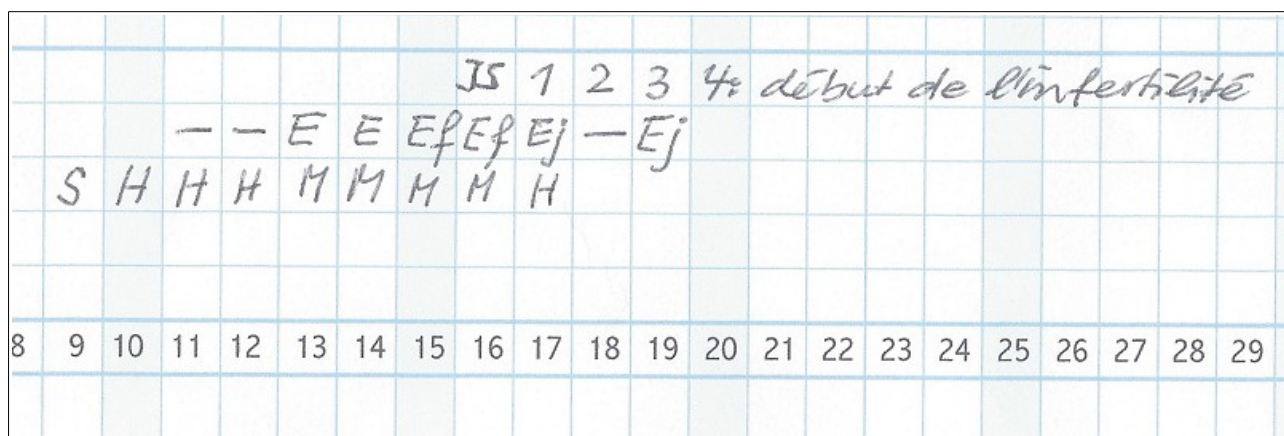 JS 1 2 3 4: début de l'infertilité
— — E E Ef Ef Ej — Ej
S H H H M M M M H
8 9 10 11 12 13 14 15 16 17 18 19 20 21 22 23 24 25 26 27 28 29